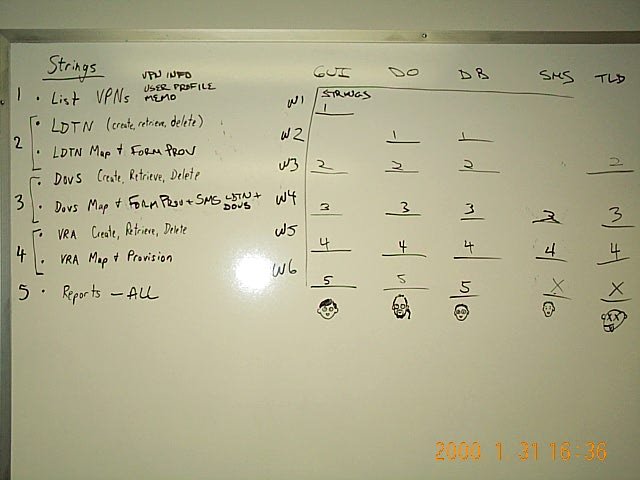 Strings
VPN INFO
USER PROFILE
MEMO
1 • List VPNs
2 • LDTN (create, retrieve, delete)
• LDTN Map + FORM PROV
3 • DOVS Create, Retrieve, Delete
• DOVS Map + FORM PROV + SMS LDTN + DOVS
4 • VRA Create, Retrieve, Delete
• VRA Map + Provision
5 • Reports — ALL
GUI DO DB SMS TLD
STRINGS
W1 1
W2 1 1
W3 2 2 2 2
W4 3 3 3 3 3
W5 4 4 4 4 4
W6 5 5 5 X X
2000 1.31 16:36